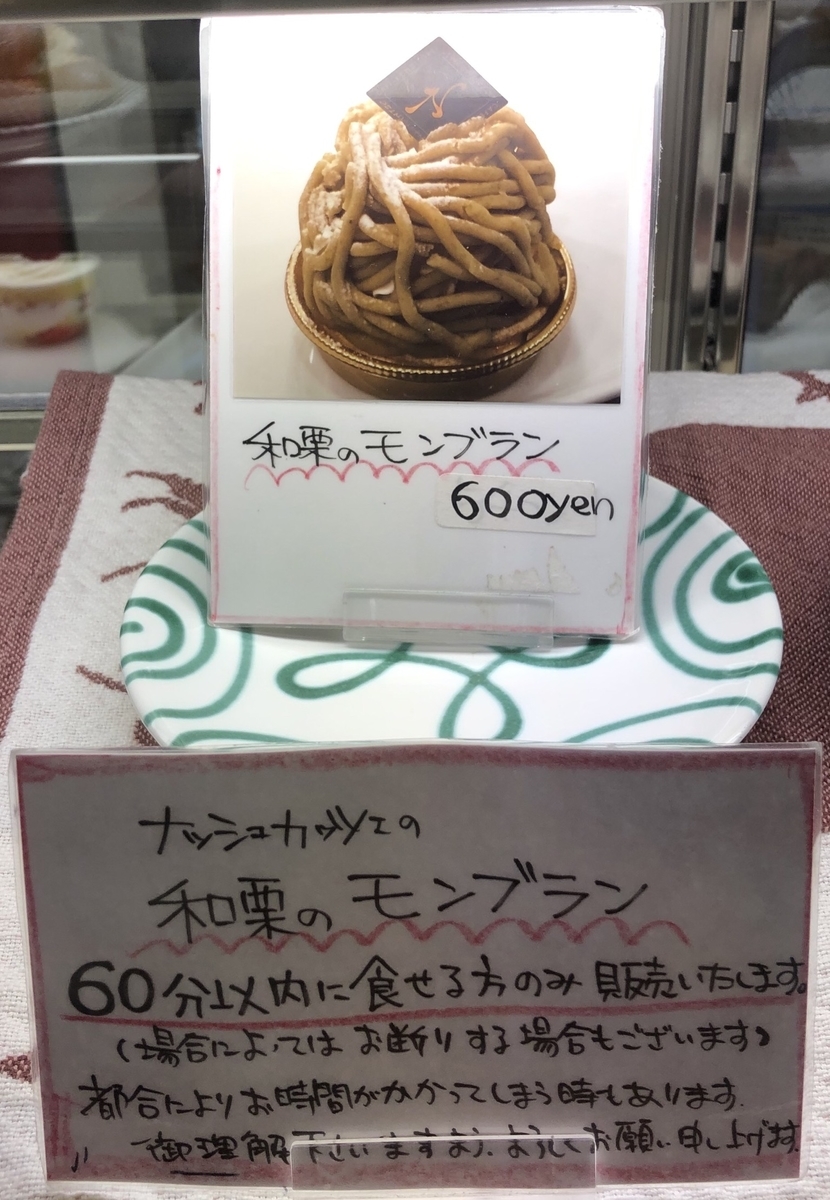 N
和栗のモンブラン
600yen
ナッシュカッツェの
和栗のモンブラン
60分以内に食せる方のみ販売いたします。
(場合によってはお断りする場合もございます)
都合によりお時間がかかってしまう時もあります。
御理解下さいますよう、よろしくお願い申し上げます。